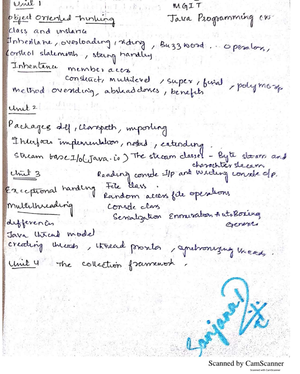 Unit 1 MGIT
object oriented thinking Java Programming
class and
Inheritance, overloading, Buzz word operators,
Control statements, string handling
Inheritance member access
Construct, multilevel, super, final, polymorp
method overriding, abstract classes, benefits
Unit 2
Packages def, classpath, importing
Interface implementation, nested, extending.
Stream base I/O (Java.io) The stream classes - Byte stream and
character stream
Unit 3 Reading console i/p and writing console o/p.
Exceptional handling File class.
Random access file operations
Multithreading Console class
differences Serialization Enumeration Auto Boxing
Generics
Java thread model
creating threads, thread, synchronizing threads.
Unit 4 The collection framework.
Sanjana
Scanned by CamScanner
Scanned with CamScanner